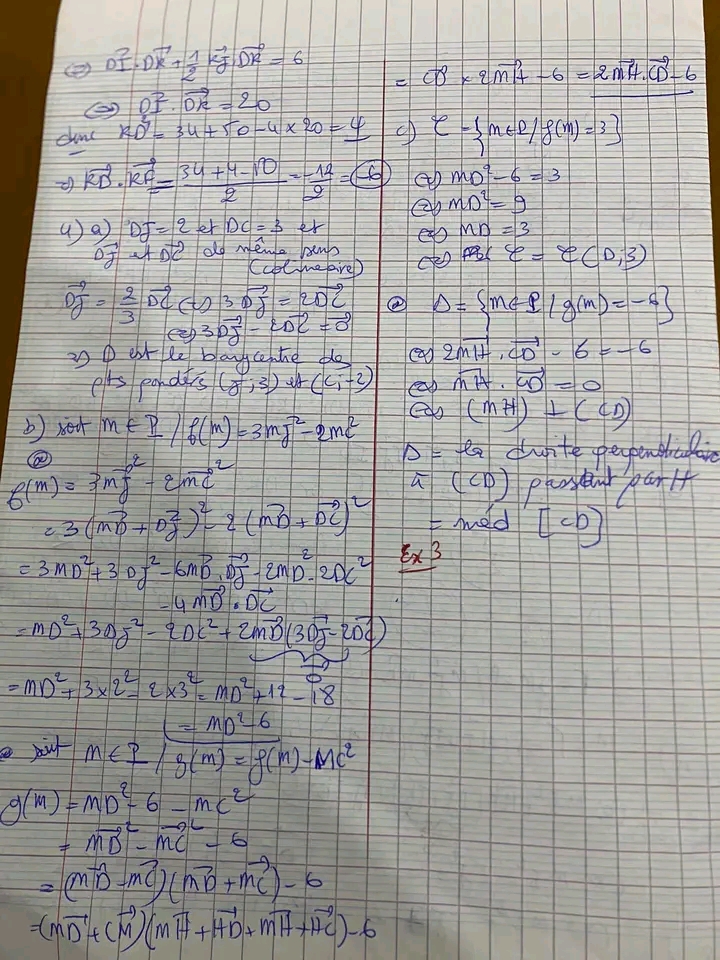 ⇔ DI⃗·DK⃗ + 1/2 KJ⃗·DK⃗ = 6
⇔ DI⃗·DK⃗ = 20
donc KD² = 34 + 50 - 4×20 = 4
⇒ KD⃗·KC⃗ = (34 + 4 - 50)/2 = -12/2 = -6
4) a) DJ = 2 et DC = 3 et
DJ⃗ et DC⃗ de même sens
(colineaire)
DJ⃗ = 2/3 DC⃗ ⇔ 3DJ⃗ = 2DC⃗
⇔ 3DJ⃗ - 2DC⃗ = 0⃗
⇒ D est le barycentre de
pts pondérés (J,3) et (C,-2)
b) soit M ∈ P / f(M) = 3MJ² - 2MC²
f(M) = 3MJ⃗² - 2MC⃗²
= 3(MD⃗ + DJ⃗)² - 2(MD⃗ + DC⃗)²
= 3MD² + 3DJ² - 6MD⃗·DJ⃗ - 2MD² - 2DC²
- 4MD⃗·DC⃗
= MD² + 3DJ² - 2DC² + 2MD⃗(3DJ⃗ - 2DC⃗)
0⃗
= MD² + 3×2² - 2×3² = MD² + 12 - 18
= MD² - 6
• soit M ∈ P / g(M) = f(M) - MC²
g(M) = MD² - 6 - MC²
= MD⃗² - MC⃗² - 6
= (MD⃗ - MC⃗)(MD⃗ + MC⃗) - 6
= (MD⃗ + CM⃗)(MH⃗ + HD⃗ + MH⃗ + HC⃗) - 6
= CD⃗ × 2MH⃗ - 6 = 2MH⃗·CD⃗ - 6
c) C = {M ∈ P / f(M) = 3}
⇔ MD² - 6 = 3
⇔ MD² = 9
⇔ MD = 3
⇔ C = C(D,3)
Δ = {M ∈ P / g(M) = -6}
⇔ 2MH⃗·CD⃗ - 6 = -6
⇔ MH⃗·CD⃗ = 0
⇔ (MH) ⊥ (CD)
Δ = la droite perpendiculaire
à (CD) passant par H
= méd [CD]
Ex 3